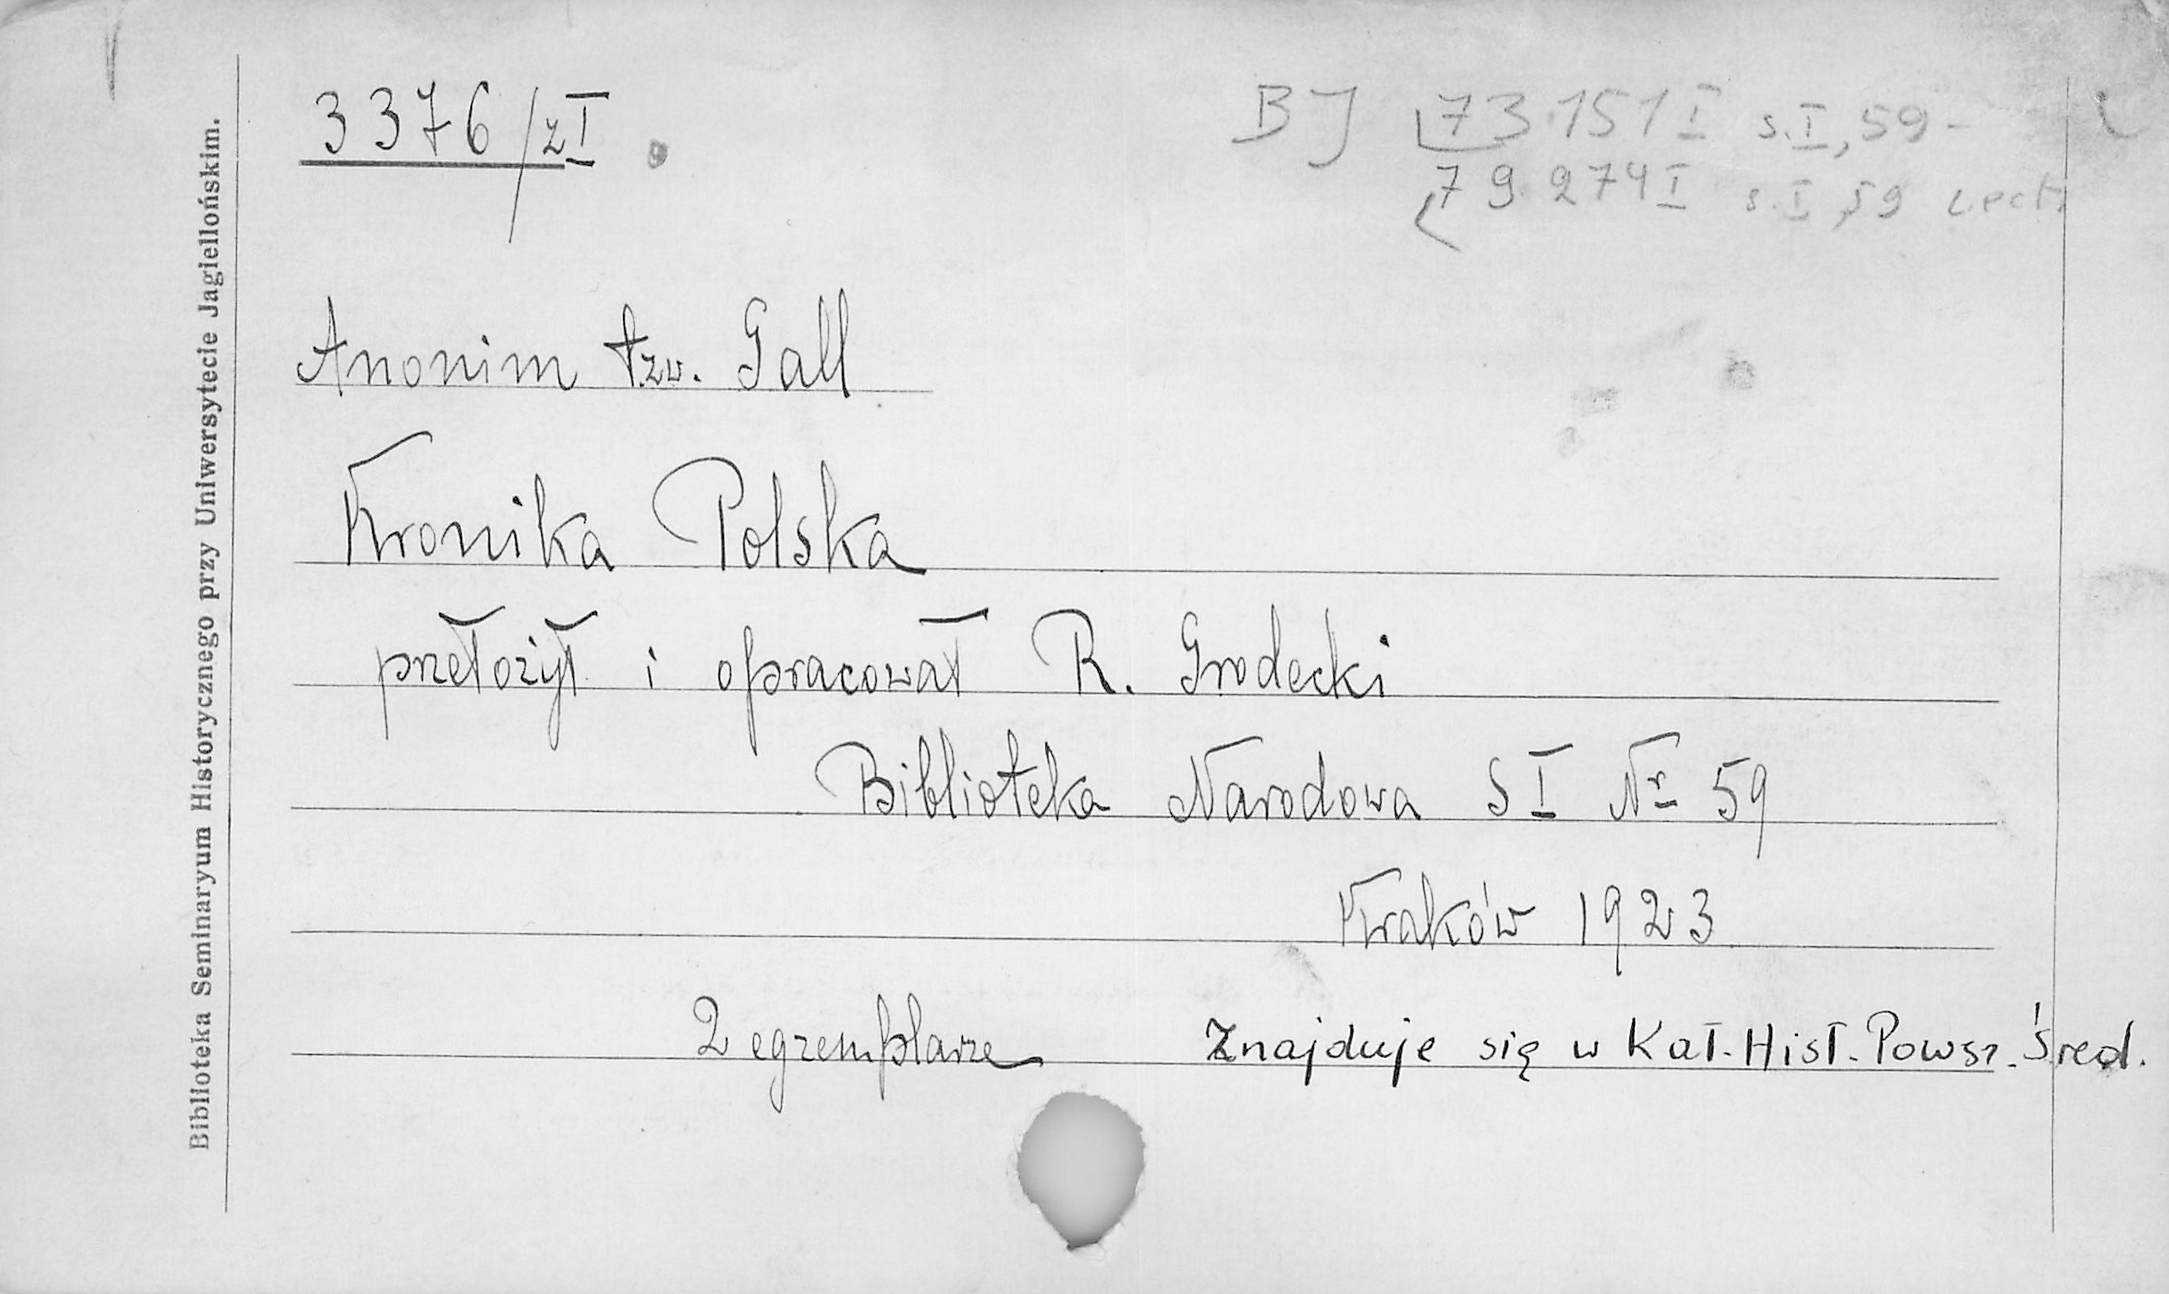 Biblioteka Seminaryum Historycznego przy Uniwersytecie Jagiellońskim.
3376/zI
BJ 73.151 I s.I, 59 -
79.274 I s.I, 59 Lect.
Anonim tzw. Gall
Kronika Polska
przełożył i opracował R. Grodecki
Biblioteka Narodowa S I Nr 59
Kraków 1923
2 egzemplarze
Znajduje się w Kat. Hist. Powsz. Śred.